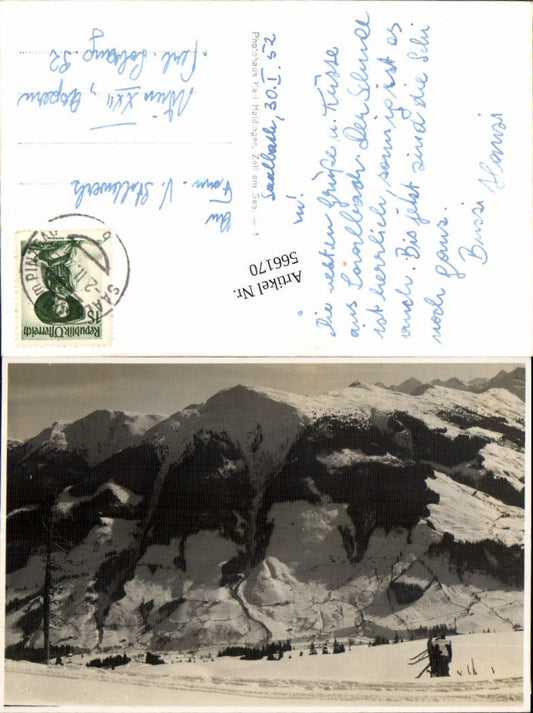 Saalbach, 30.I.52
M!
Die besten Grüße u. Küsse
aus Saalbach. Der Schnee
ist herrlich, sonnig ist es
auch. Bis jetzt sind die Ski
noch ganz.
Bussi Hansi
An
Fam. V.
Wien XXII, Aspern
52
Photohaus Karl Haidinger, Zell am See. —
Artikel Nr.
566170
SAAL
2.II.
1S
Republik Österreich